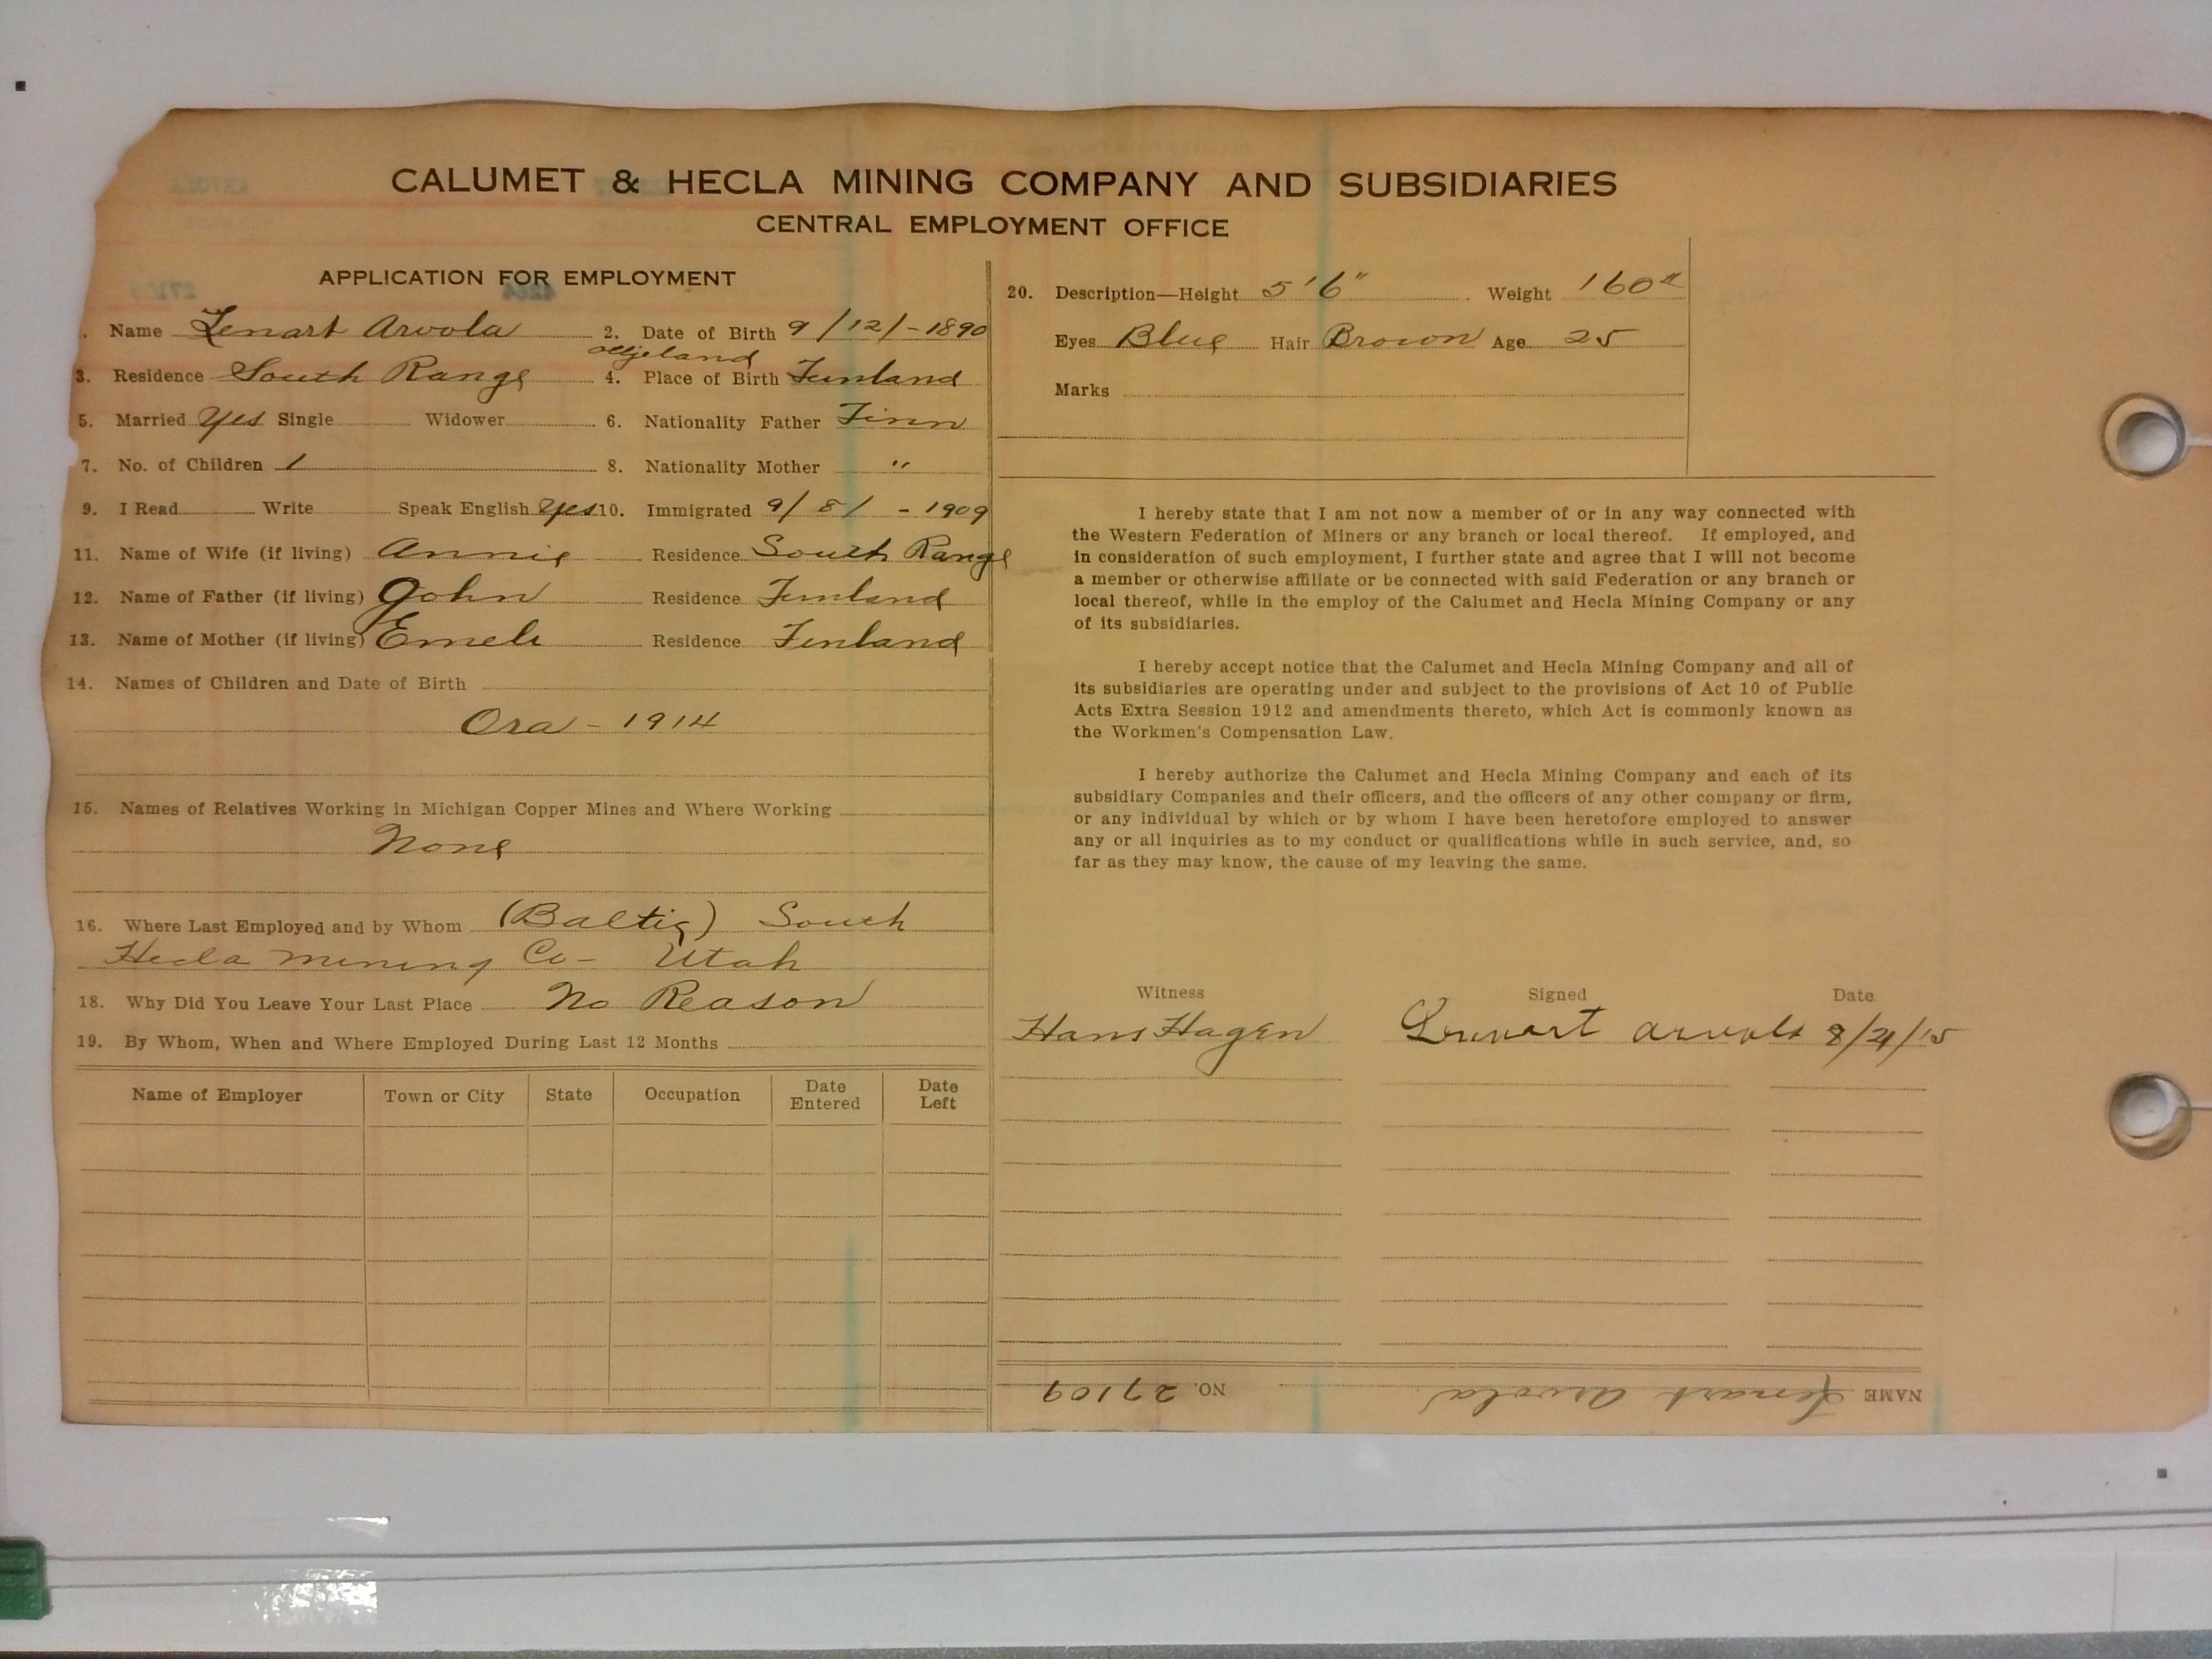 CALUMET & HECLA MINING COMPANY AND SUBSIDIARIES
CENTRAL EMPLOYMENT OFFICE
APPLICATION FOR EMPLOYMENT
. Name Lenart Arvola 2. Date of Birth 9/12/-1890
3. Residence South Range 4. Place of Birth Finland
5. Married Yes Single Widower 6. Nationality Father Finn
7. No. of Children 1 8. Nationality Mother "
9. I Read Write Speak English Yes 10. Immigrated 9/8/ - 1909
11. Name of Wife (if living) Annie Residence South Range
12. Name of Father (if living) John Residence Finland
13. Name of Mother (if living) Emeli Residence Finland
14. Names of Children and Date of Birth
Ora - 1914
15. Names of Relatives Working in Michigan Copper Mines and Where Working
None
16. Where Last Employed and by Whom (Baltic) South
Hecla Mining Co- Utah
18. Why Did You Leave Your Last Place No Reason
19. By Whom, When and Where Employed During Last 12 Months
Name of Employer Town or City State Occupation Date Entered Date Left
20. Description—Height 5'6" Weight 160#
Eyes Blue Hair Brown Age 25
Marks
I hereby state that I am not now a member of or in any way connected with
the Western Federation of Miners or any branch or local thereof. If employed, and
in consideration of such employment, I further state and agree that I will not become
a member or otherwise affiliate or be connected with said Federation or any branch or
local thereof, while in the employ of the Calumet and Hecla Mining Company or any
of its subsidiaries.
I hereby accept notice that the Calumet and Hecla Mining Company and all of
its subsidiaries are operating under and subject to the provisions of Act 10 of Public
Acts Extra Session 1912 and amendments thereto, which Act is commonly known as
the Workmen's Compensation Law.
I hereby authorize the Calumet and Hecla Mining Company and each of its
subsidiary Companies and their officers, and the officers of any other company or firm,
or any individual by which or by whom I have been heretofore employed to answer
any or all inquiries as to my conduct or qualifications while in such service, and, so
far as they may know, the cause of my leaving the same.
Witness Signed Date
Hans Hagen Lennart Arvola 8/21/15
NAME Lenart Arvola NO. 27109